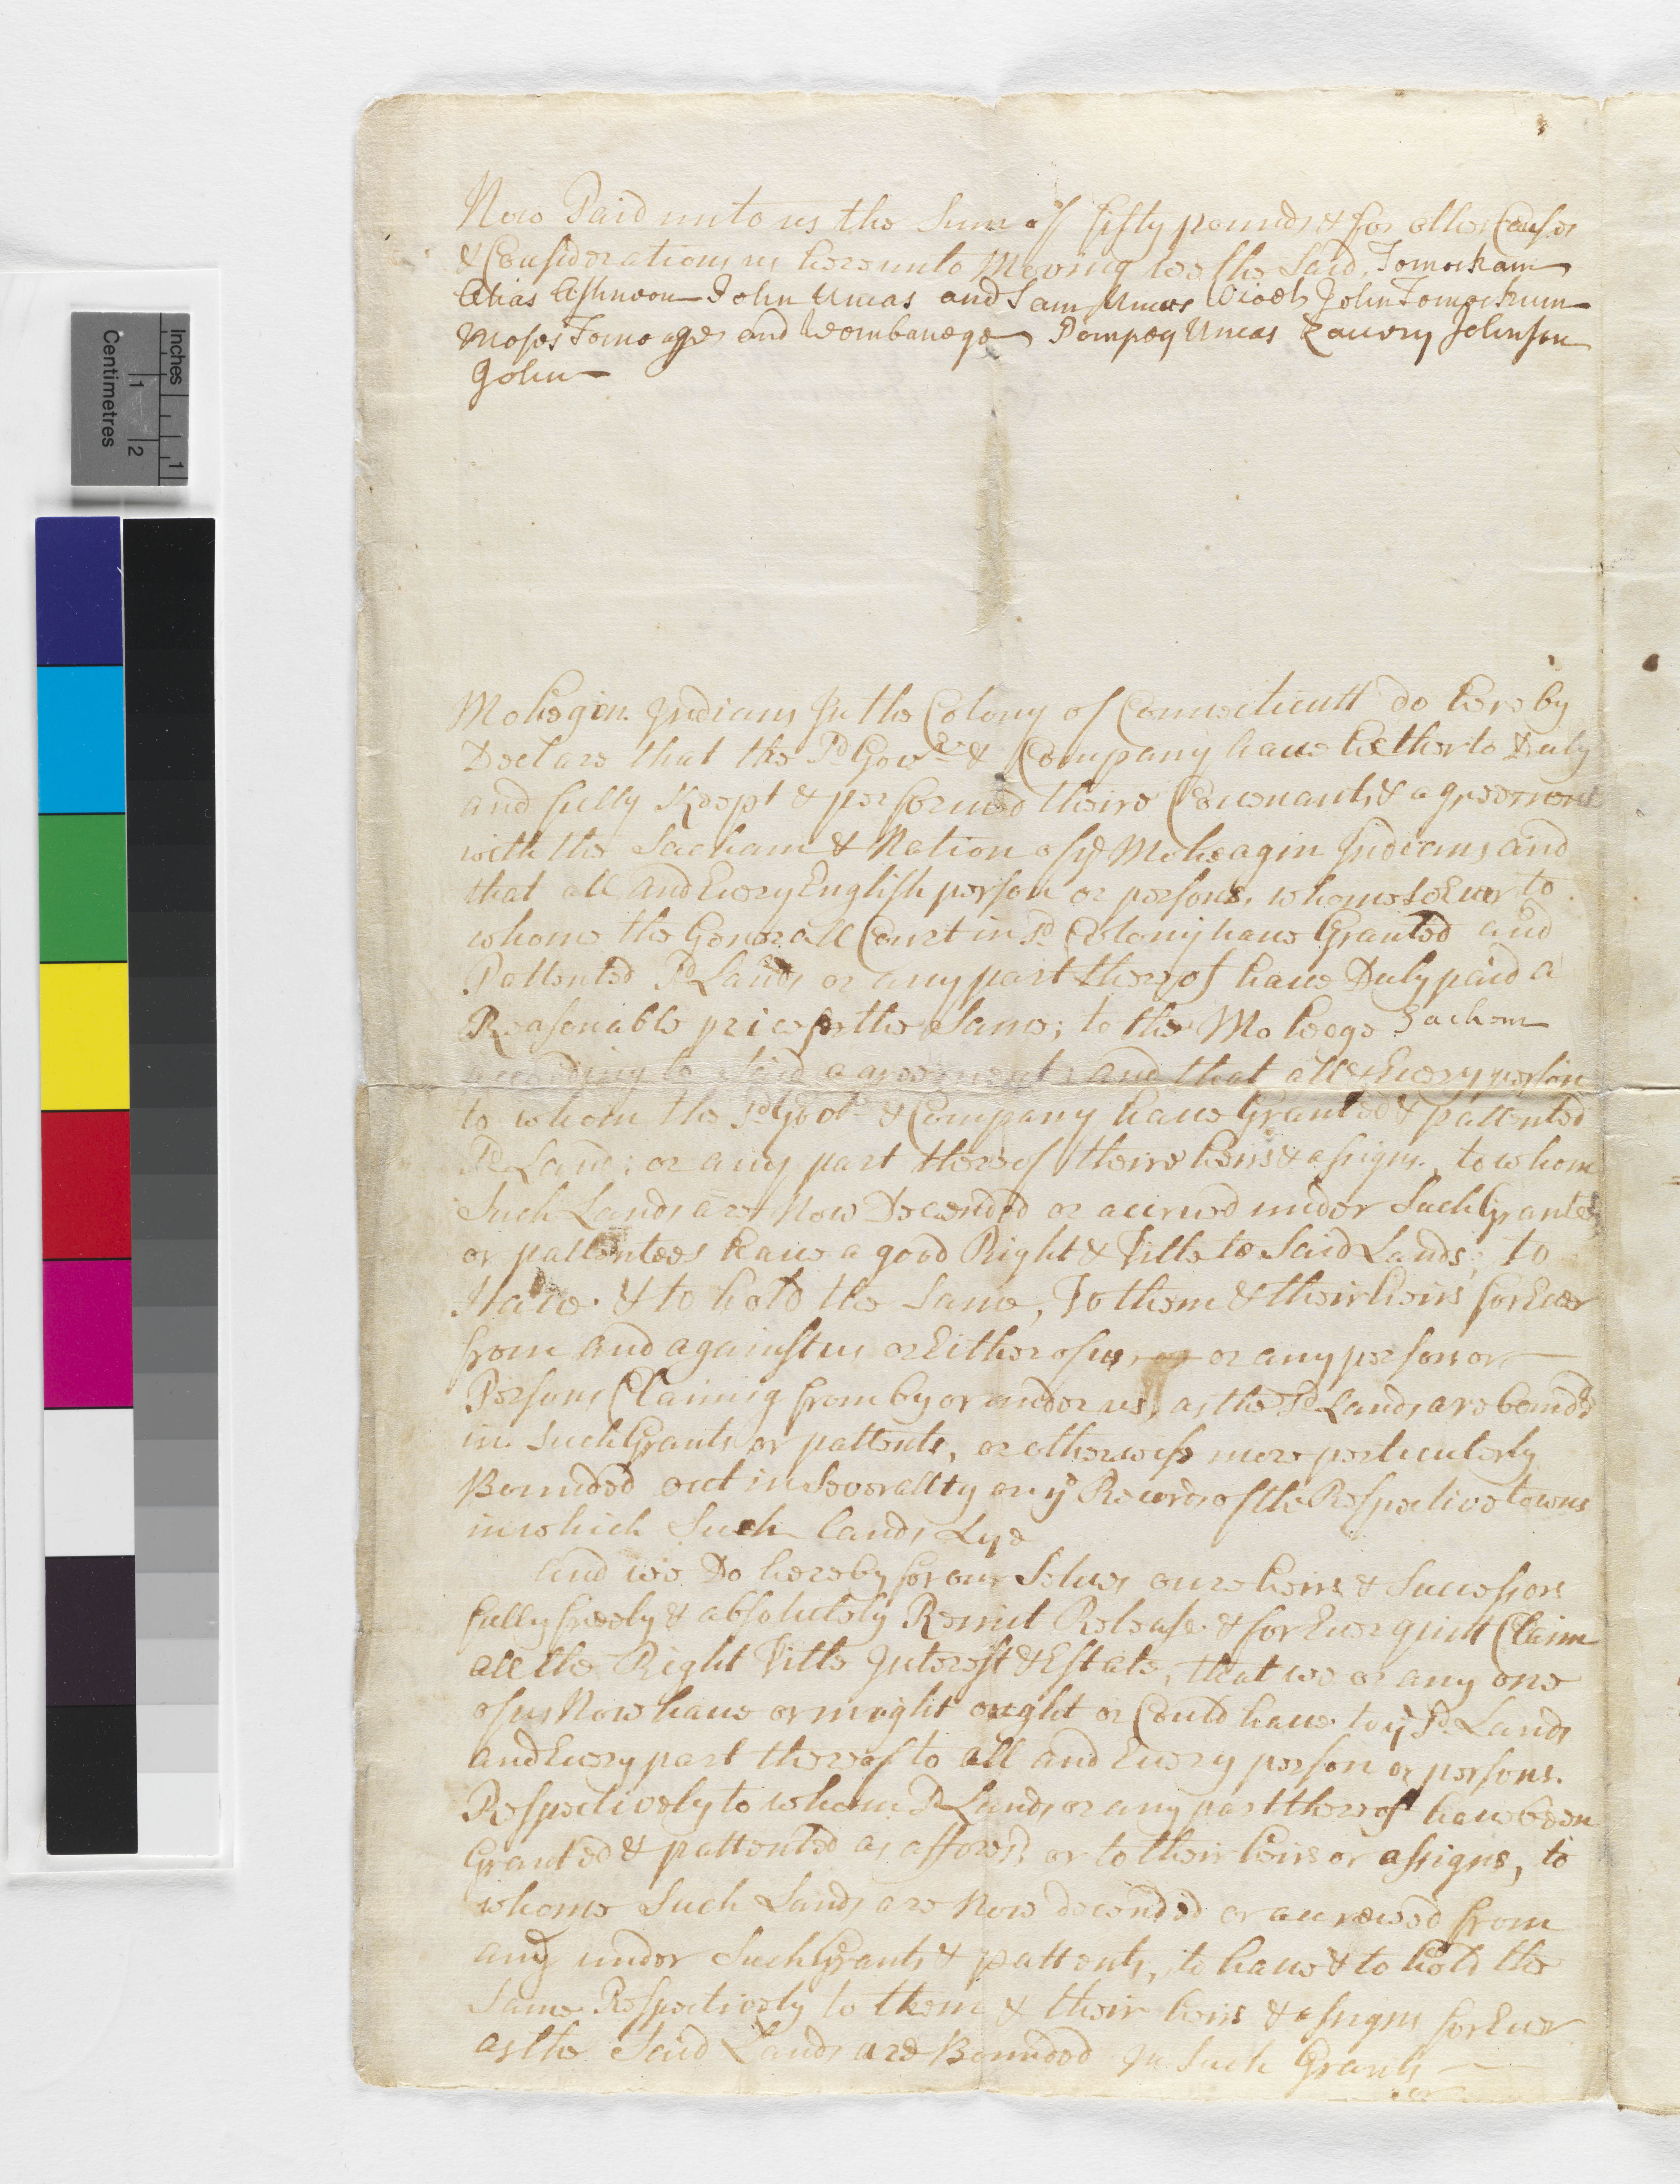 Now Paid unto us the Sum of fifty pounds & for other Causes
& Considerations us hereunto Moving we the Said, Tomockam
Alias Ashneon John Uncas and Sam Uncas John Tomockum
Moses Tomoages and Wombanege Pompey Uncas Zacery Johnson
John
Mohegin Indians In the Colony of Connecticutt do hereby
Declare that the Sd Govr & Company have hetherto Duly
and fully Keept & performed theire Covenants & agreement
with the Sacham & Nation of ye Moheagin Indians and
that all and Every English person or persons, whomsoEver to
whome the Generall Court in Sd Colony have Granted and
Pattented Sd Lands or any part thereof have Duly paid a
Reasonable price for the Same; to the Moheege Sachem
according to Said agreement and that all & Every person
to whom the Sd Govr & Company have Granted & pattented
Sd Land; or any part thereof theire heirs & assigns, to whom
Such Lands are Now Decended or accrued under Such Grantees
or pattentees have a good Right & Title to Said Lands; to
Have & to hold the Same, To them & their heirs forEver
from and against us or Either of us, or any person or
Persons Claimig from by or under us, as the Sd Lands are bounded
in Such Grants or pattents, or otherwise more perticulerly
Bounded out in Severallty on ye Records of the Respective towns
in which Such lands Lye
And we Do hereby for our Selves oure heirs & Successors
fully freely & absolutely Remit Release & forEver quitt Claim
all the Right Title Interest & Estate, that we or any one
of us Now have or might ought or Could have to ye Sd Lands
and Every part thereof to all and Every person or persons.
Respectively to whom Sd Lands or any part thereof have been
Granted & pattented as aforesd, or to their heirs or assigns, to
whome Such Lands are Now decended or accrewed from
any under Such Grants & pattents, to have & to hold the
Same Respectively to them & their heirs & assigns forEver
as the Said Lands are Bounded In Such Grants
or
Inches
1
Centimetres
1
2